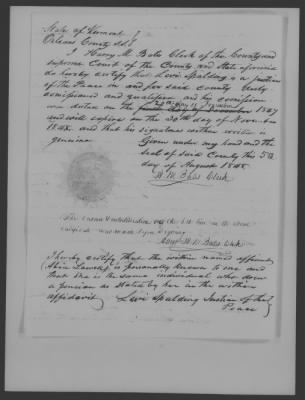 State of Vermont }
Orleans County SS. }
I Harry M Bates Clerk of the County and
Supreme Court of the County and State aforesaid
do hereby certify that Levi Spalding is a Justice
of the Peace in and for said County duly
commissioned and qualified and his commission
was dated on the 1847
and will expire on the 30th day of Novem-
ber 1848. and that his signature within written is
genuine Given under my hand and the
seal of said County this 5th
day of August 1848
H. M. Bates Clerk
The erasure & interlineation in the
was made before signing
H. M. Bates Clerk
I hereby certify that the within named affiant
is personally known to me and
that she is the same individual who drew
a pension as stated by her in the within
affidavit Levi Spalding Justice of the
Peace